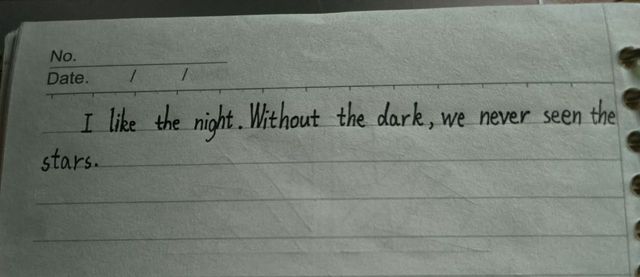 No.
Date. / /
I like the night. Without the dark, we never seen the
stars.